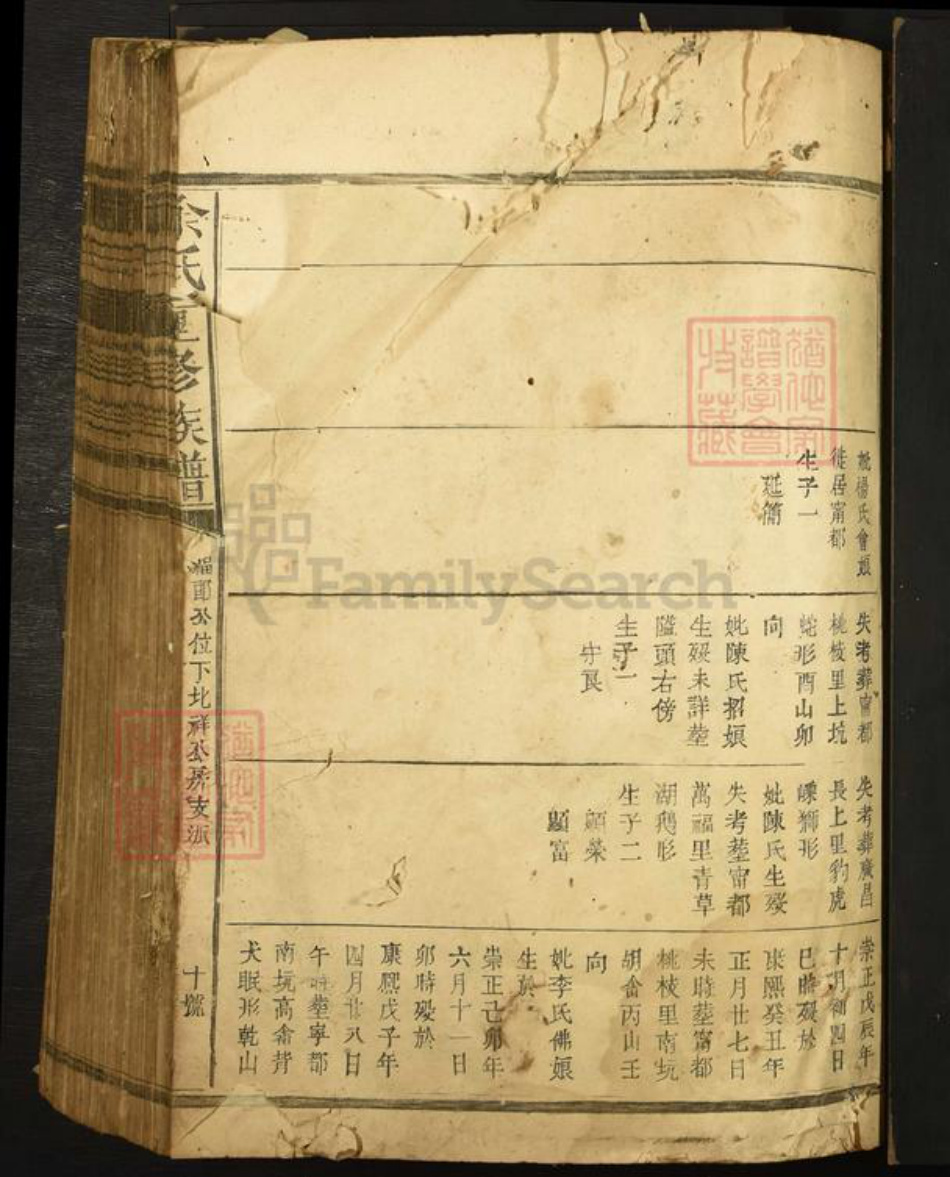 妣楊氏會娘
徙居甯都
生子一
廷簡
失考葬甯都
桃枝里上坑
蛇形酉山卯
向
妣陳氏招娘
生歿未詳塟
隘頭右傍
生子一
守良
失考葬廣昌
長上里豹虎
嵊獅形
妣陳氏生歿
失考塟甯都
萬福里青草
湖鵝形
生子二
顯榮
顯富
崇正戊辰年
十月初四日
巳時歿於
康熙癸丑年
正月廿七日
未時塟甯都
桃枝里南坑
胡畬丙山壬
向
妣李氏佛娘
生於
崇正己卯年
六月十一日
卯時歿於
康熙戊子年
四月廿八日
午時塟寧都
南坑高畬背
犬眠形乾山
余氏重修族譜
福郎公位下北祥公房支派
十號
譜學會
FamilySearch